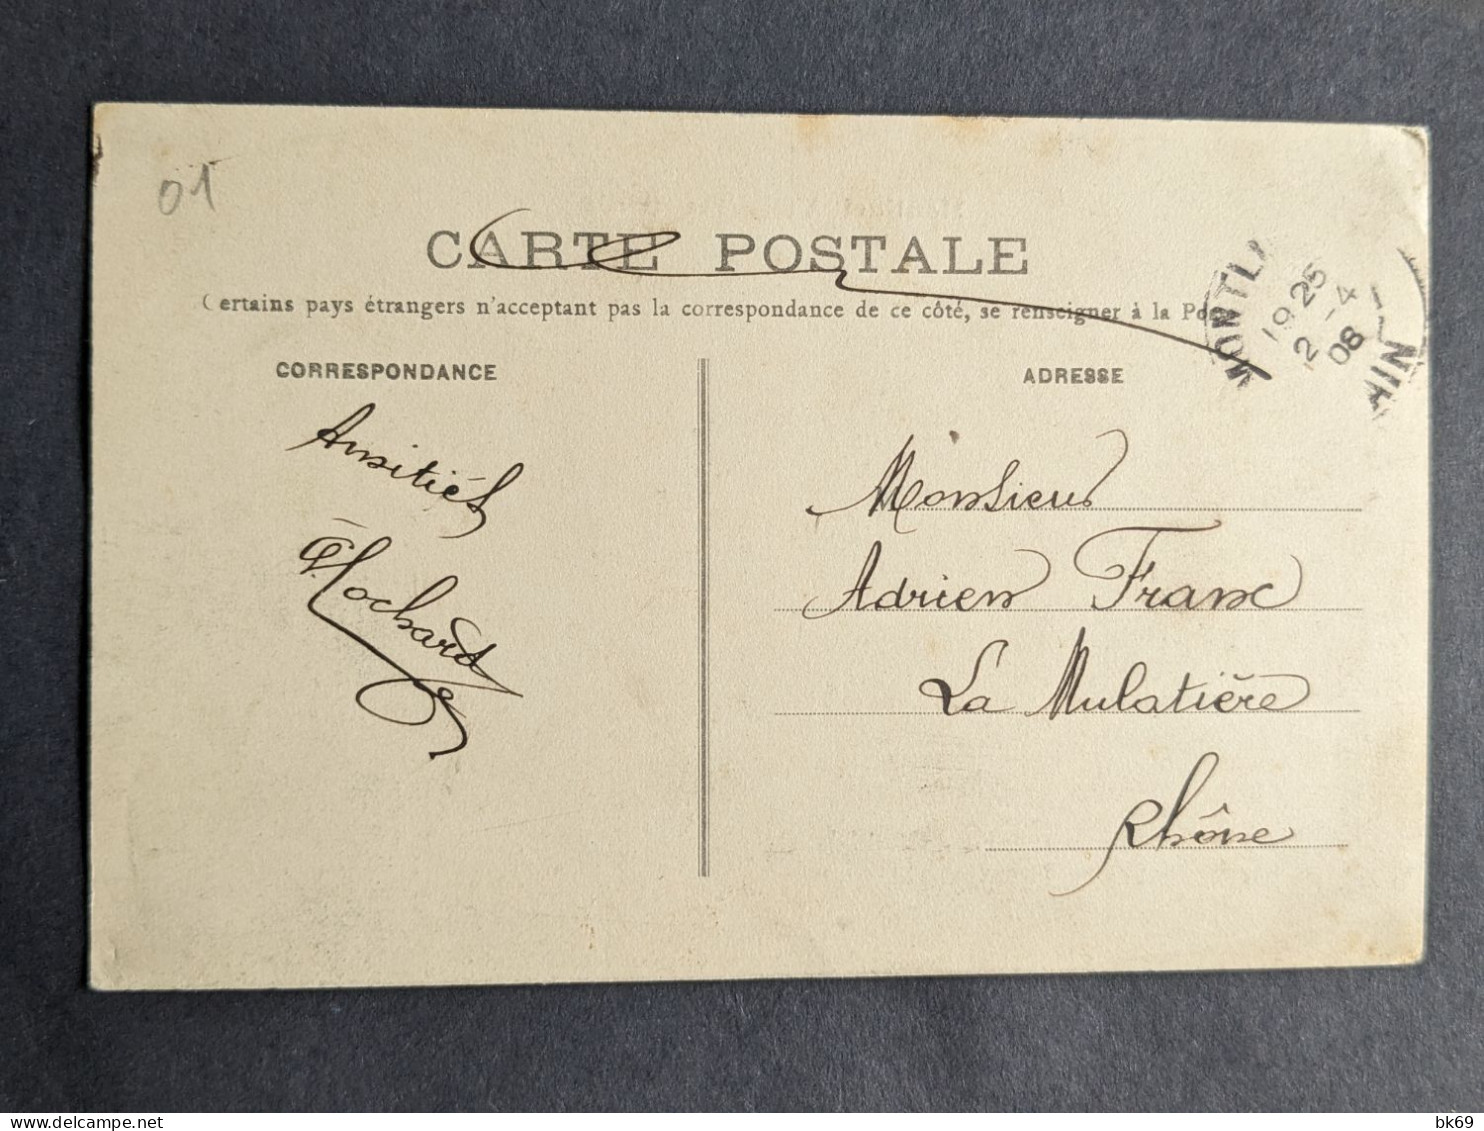 01
CARTE POSTALE
Certains pays étrangers n'acceptent pas la correspondance de ce côté, se renseigner à la Pos
CORRESPONDANCE
ADRESSE
MONTL
19 25
2 -4
08
HIN
Amitiés
Hochard
Monsieur
Adrien Franc
La Mulatière
Rhône
bk69